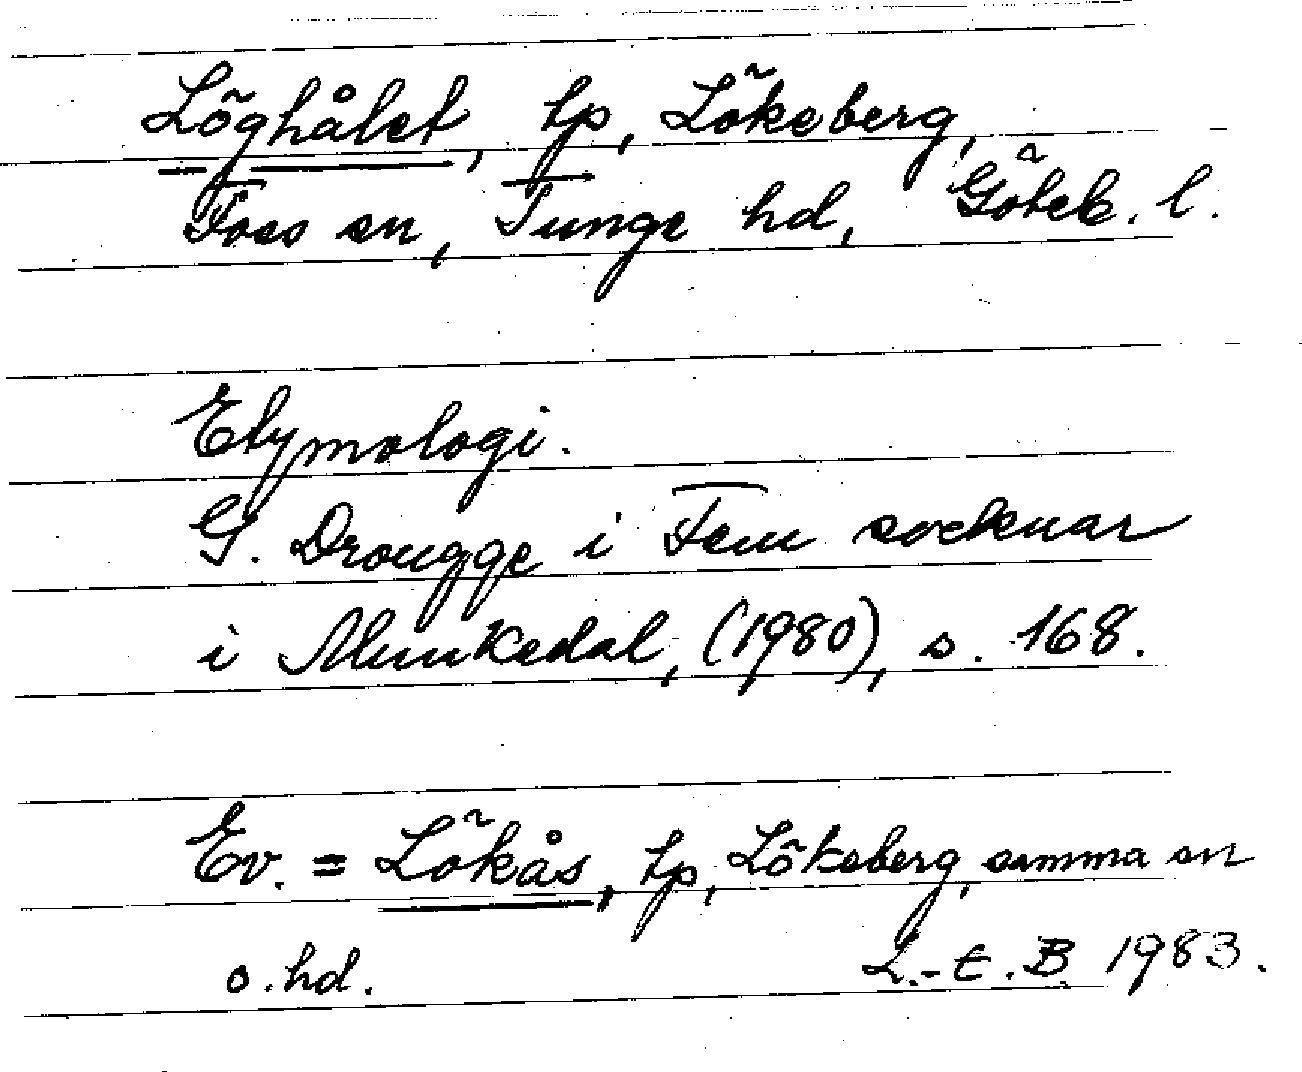 Löghålet, tp, Lökeberg,
Foss sn, Tunge hd, Göteb. l.
Etymologi.
G. Drougge i Fem socknar
i Munkedal, (1980), s. 168.
Ev. = Lökås, tp, Lökeberg, samma sn
o. hd. L.-E. B 1983.